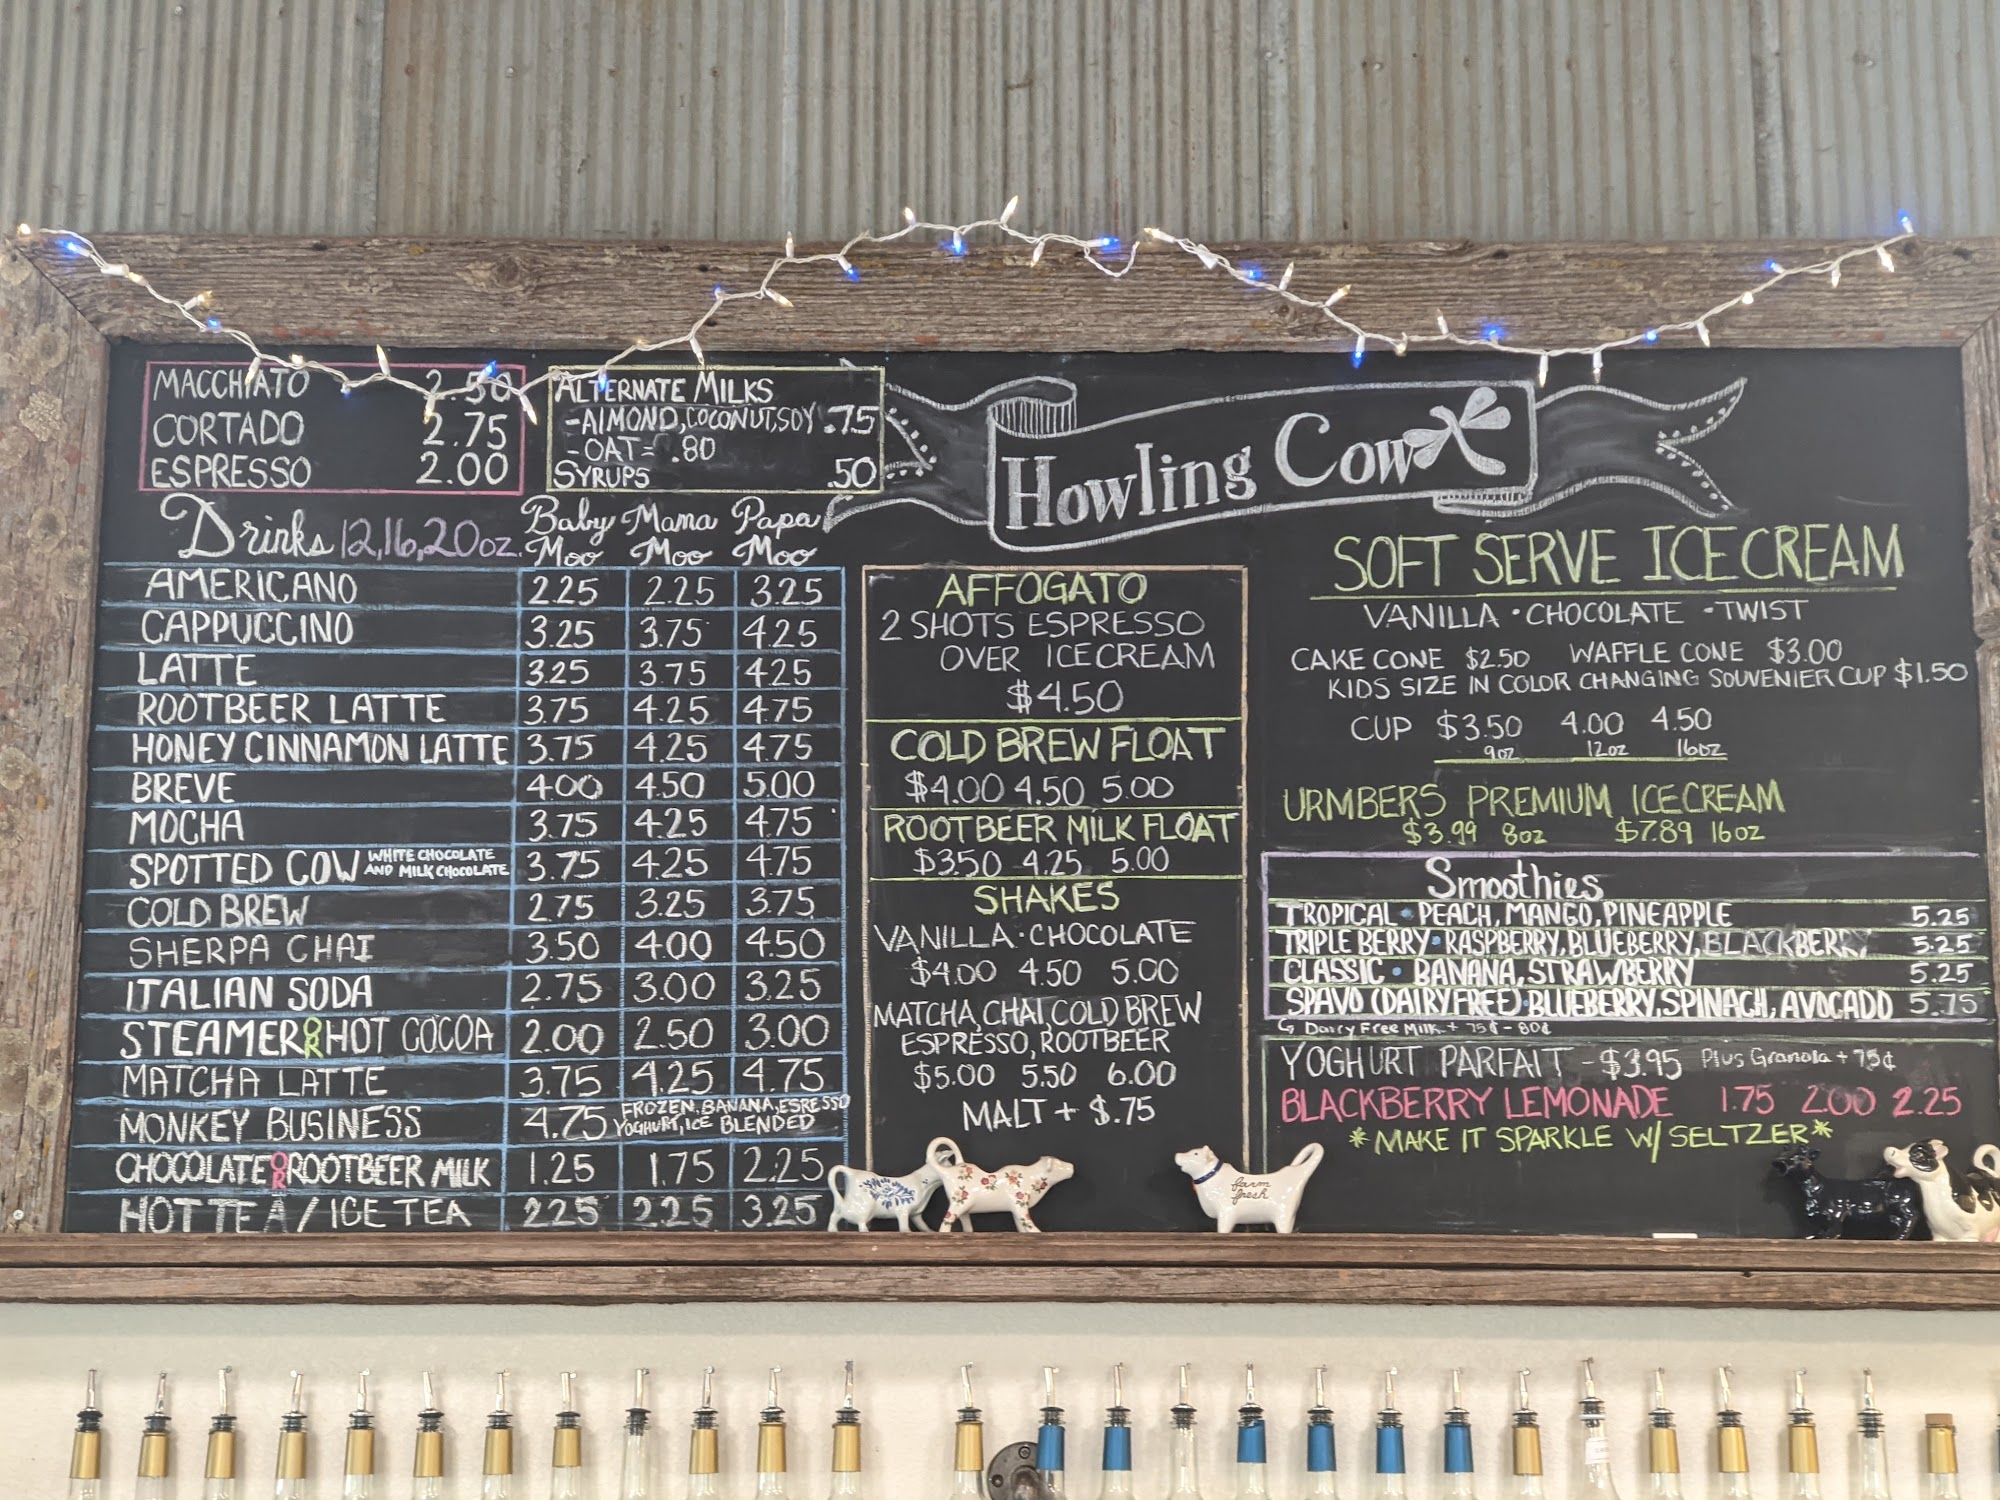 MACCHIATO 2.50
CORTADO 2.75
ESPRESSO 2.00
ALTERNATE MILKS
-ALMOND, COCONUT, SOY .75
-OAT= .80
SYRUPS .50
Howling Cow
Drinks 12, 16, 20oz. Baby Moo Mama Moo Papa Moo
AMERICANO 2.25 2.25 3.25
CAPPUCCINO 3.25 3.75 4.25
LATTE 3.25 3.75 4.25
ROOTBEER LATTE 3.75 4.25 4.75
HONEY CINNAMON LATTE 3.75 4.25 4.75
BREVE 4.00 4.50 5.00
MOCHA 3.75 4.25 4.75
SPOTTED COW WHITE CHOCOLATE AND MILK CHOCOLATE 3.75 4.25 4.75
COLD BREW 2.75 3.25 3.75
SHERPA CHAI 3.50 4.00 4.50
ITALIAN SODA 2.75 3.00 3.25
STEAMER OR HOT COCOA 2.00 2.50 3.00
MATCHA LATTE 3.75 4.25 4.75
MONKEY BUSINESS 4.75 FROZEN, BANANA, ESRESSO YOGHURT, ICE BLENDED
CHOCOLATE OR ROOTBEER MILK 1.25 1.75 2.25
HOT TEA / ICE TEA 2.25 2.25 3.25
AFFOGATO
2 SHOTS ESPRESSO
OVER ICE CREAM
$4.50
COLD BREW FLOAT
$4.00 4.50 5.00
ROOTBEER MILK FLOAT
$3.50 4.25 5.00
SHAKES
VANILLA · CHOCOLATE
$4.00 4.50 5.00
MATCHA, CHAI, COLD BREW
ESPRESSO, ROOTBEER
$5.00 5.50 6.00
MALT + $.75
farm
fresh
SOFT SERVE ICE CREAM
VANILLA · CHOCOLATE · TWIST
CAKE CONE $2.50 WAFFLE CONE $3.00
KIDS SIZE IN COLOR CHANGING SOUVENIER CUP $1.50
CUP $3.50 4.00 4.50
9oz 12oz 16oz
URMBERS PREMIUM ICE CREAM
$3.99 8oz $7.89 16oz
Smoothies
TROPICAL · PEACH, MANGO, PINEAPPLE 5.25
TRIPLE BERRY · RASPBERRY, BLUEBERRY, BLACKBERRY 5.25
CLASSIC · BANANA, STRAWBERRY 5.25
SPAVO (DAIRY FREE) · BLUEBERRY, SPINACH, AVOCADO 5.75
↳ Dairy Free Milk + 75¢ - 80¢
YOGHURT PARFAIT - $3.95 Plus Granola + 75¢
BLACKBERRY LEMONADE 1.75 2.00 2.25
*MAKE IT SPARKLE W/ SELTZER*